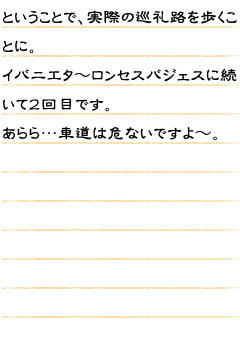 ということで、実際の巡礼路を歩くこ
とに。
イパニエタ〜ロンセスバジェスに続
いて2回目です。
あらら…車道は危ないですよ〜。